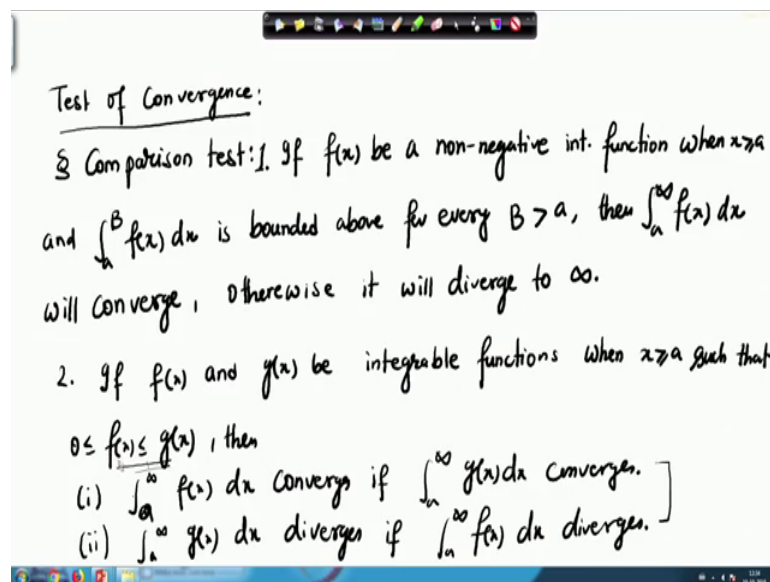 Test of Convergence:
§ Comparison test: 1. If f(x) be a non-negative int. function when x⩾a
and ∫_a^B f(x) dx is bounded above for every B > a, then ∫_a^∞ f(x) dx
will converge, otherewise it will diverge to ∞.
2. If f(x) and g(x) be integrable functions when x⩾a such that
0≤ f(x)≤ g(x), then
(i) ∫_a^∞ f(x) dx converges if ∫_a^∞ g(x)dx converges.
(ii) ∫_a^∞ g(x) dx diverges if ∫_a^∞ f(x) dx diverges.